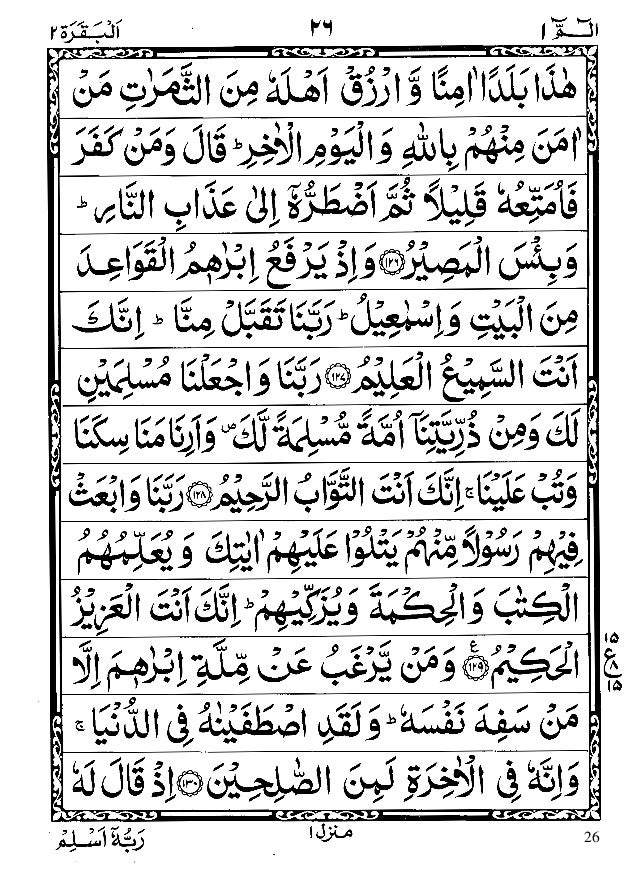 الٓـمّٓ ١ ٢٦ اَلْبَقَرَة ٢
هٰذَا بَلَدًا اٰمِنًا وَّ ارْزُقْ اَهْلَهٗ مِنَ الثَّمَرٰتِ مَنْ
اٰمَنَ مِنْهُمْ بِاللّٰهِ وَ الْيَوْمِ الْاٰخِرِ ؕ قَالَ وَمَنْ كَفَرَ
فَاُمَتِّعُهٗ قَلِيْلًا ثُمَّ اَضْطَرُّهٗۤ اِلٰى عَذَابِ النَّارِ ؕ
وَبِئْسَ الْمَصِيْرُ ﴿١٢٦﴾ وَاِذْ يَرْفَعُ اِبْرٰهٖمُ الْقَوَاعِدَ
مِنَ الْبَيْتِ وَاِسْمٰعِيْلُ ؕ رَبَّنَا تَقَبَّلْ مِنَّا ؕ اِنَّكَ
اَنْتَ السَّمِيْعُ الْعَلِيْمُ ﴿١٢٧﴾ رَبَّنَا وَاجْعَلْنَا مُسْلِمَيْنِ
لَكَ وَمِنْ ذُرِّيَّتِنَاۤ اُمَّةً مُّسْلِمَةً لَّكَ ۪ وَاَرِنَا مَنَاسِكَنَا
وَتُبْ عَلَيْنَا ۚ اِنَّكَ اَنْتَ التَّوَّابُ الرَّحِيْمُ ﴿١٢٨﴾ رَبَّنَا وَابْعَثْ
فِيْهِمْ رَسُوْلًا مِّنْهُمْ يَتْلُوْا عَلَيْهِمْ اٰيٰتِكَ وَيُعَلِّمُهُمُ
الْكِتٰبَ وَالْحِكْمَةَ وَيُزَكِّيْهِمْ ؕ اِنَّكَ اَنْتَ الْعَزِيْزُ
الْحَكِيْمُ ﴿١٢٩﴾ ع وَمَنْ يَّرْغَبُ عَنْ مِّلَّةِ اِبْرٰهٖمَ اِلَّا
١٥
ع ٨
١٥
مَنْ سَفِهَ نَفْسَهٗ ؕ وَلَقَدِ اصْطَفَيْنٰهُ فِى الدُّنْيَا ۚ
وَاِنَّهٗ فِى الْاٰخِرَةِ لَمِنَ الصّٰلِحِيْنَ ﴿١٣٠﴾ اِذْ قَالَ لَهٗ
منزل ١
رَبُّهٗۤ اَسْلِمْ
26